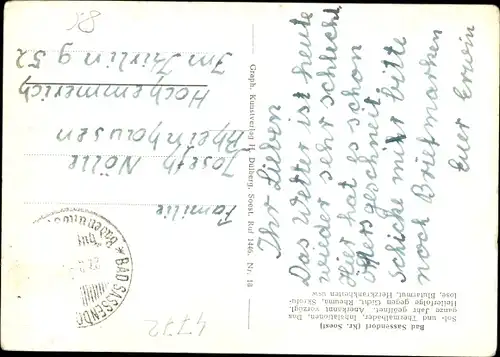 Bad Sassendorf (Kr. Soest)
Sol- und Thermalbäder, Inhalationen. Das
ganze Jahr geöffnet. Anerkannt vorzügl.
Heilerfolge gegen Gicht, Rheuma, Skrofu-
lose, Blutarmut, Herzkrankheiten usw.
Ihr Lieben
Das Wetter ist heute
wieder sehr schlecht
Hier hat es schon
öfters geschneit
Schicke mir bitte
noch Briefmarken
Euer Erwin
Graph. Kunstverlag H. Dülberg, Soest. Ruf 1446. Nr. 18
Familie
Joseph Nölle
Rheinhausen
Hochemmerich
Im Thirling 52
BAD SASSENDO
4772